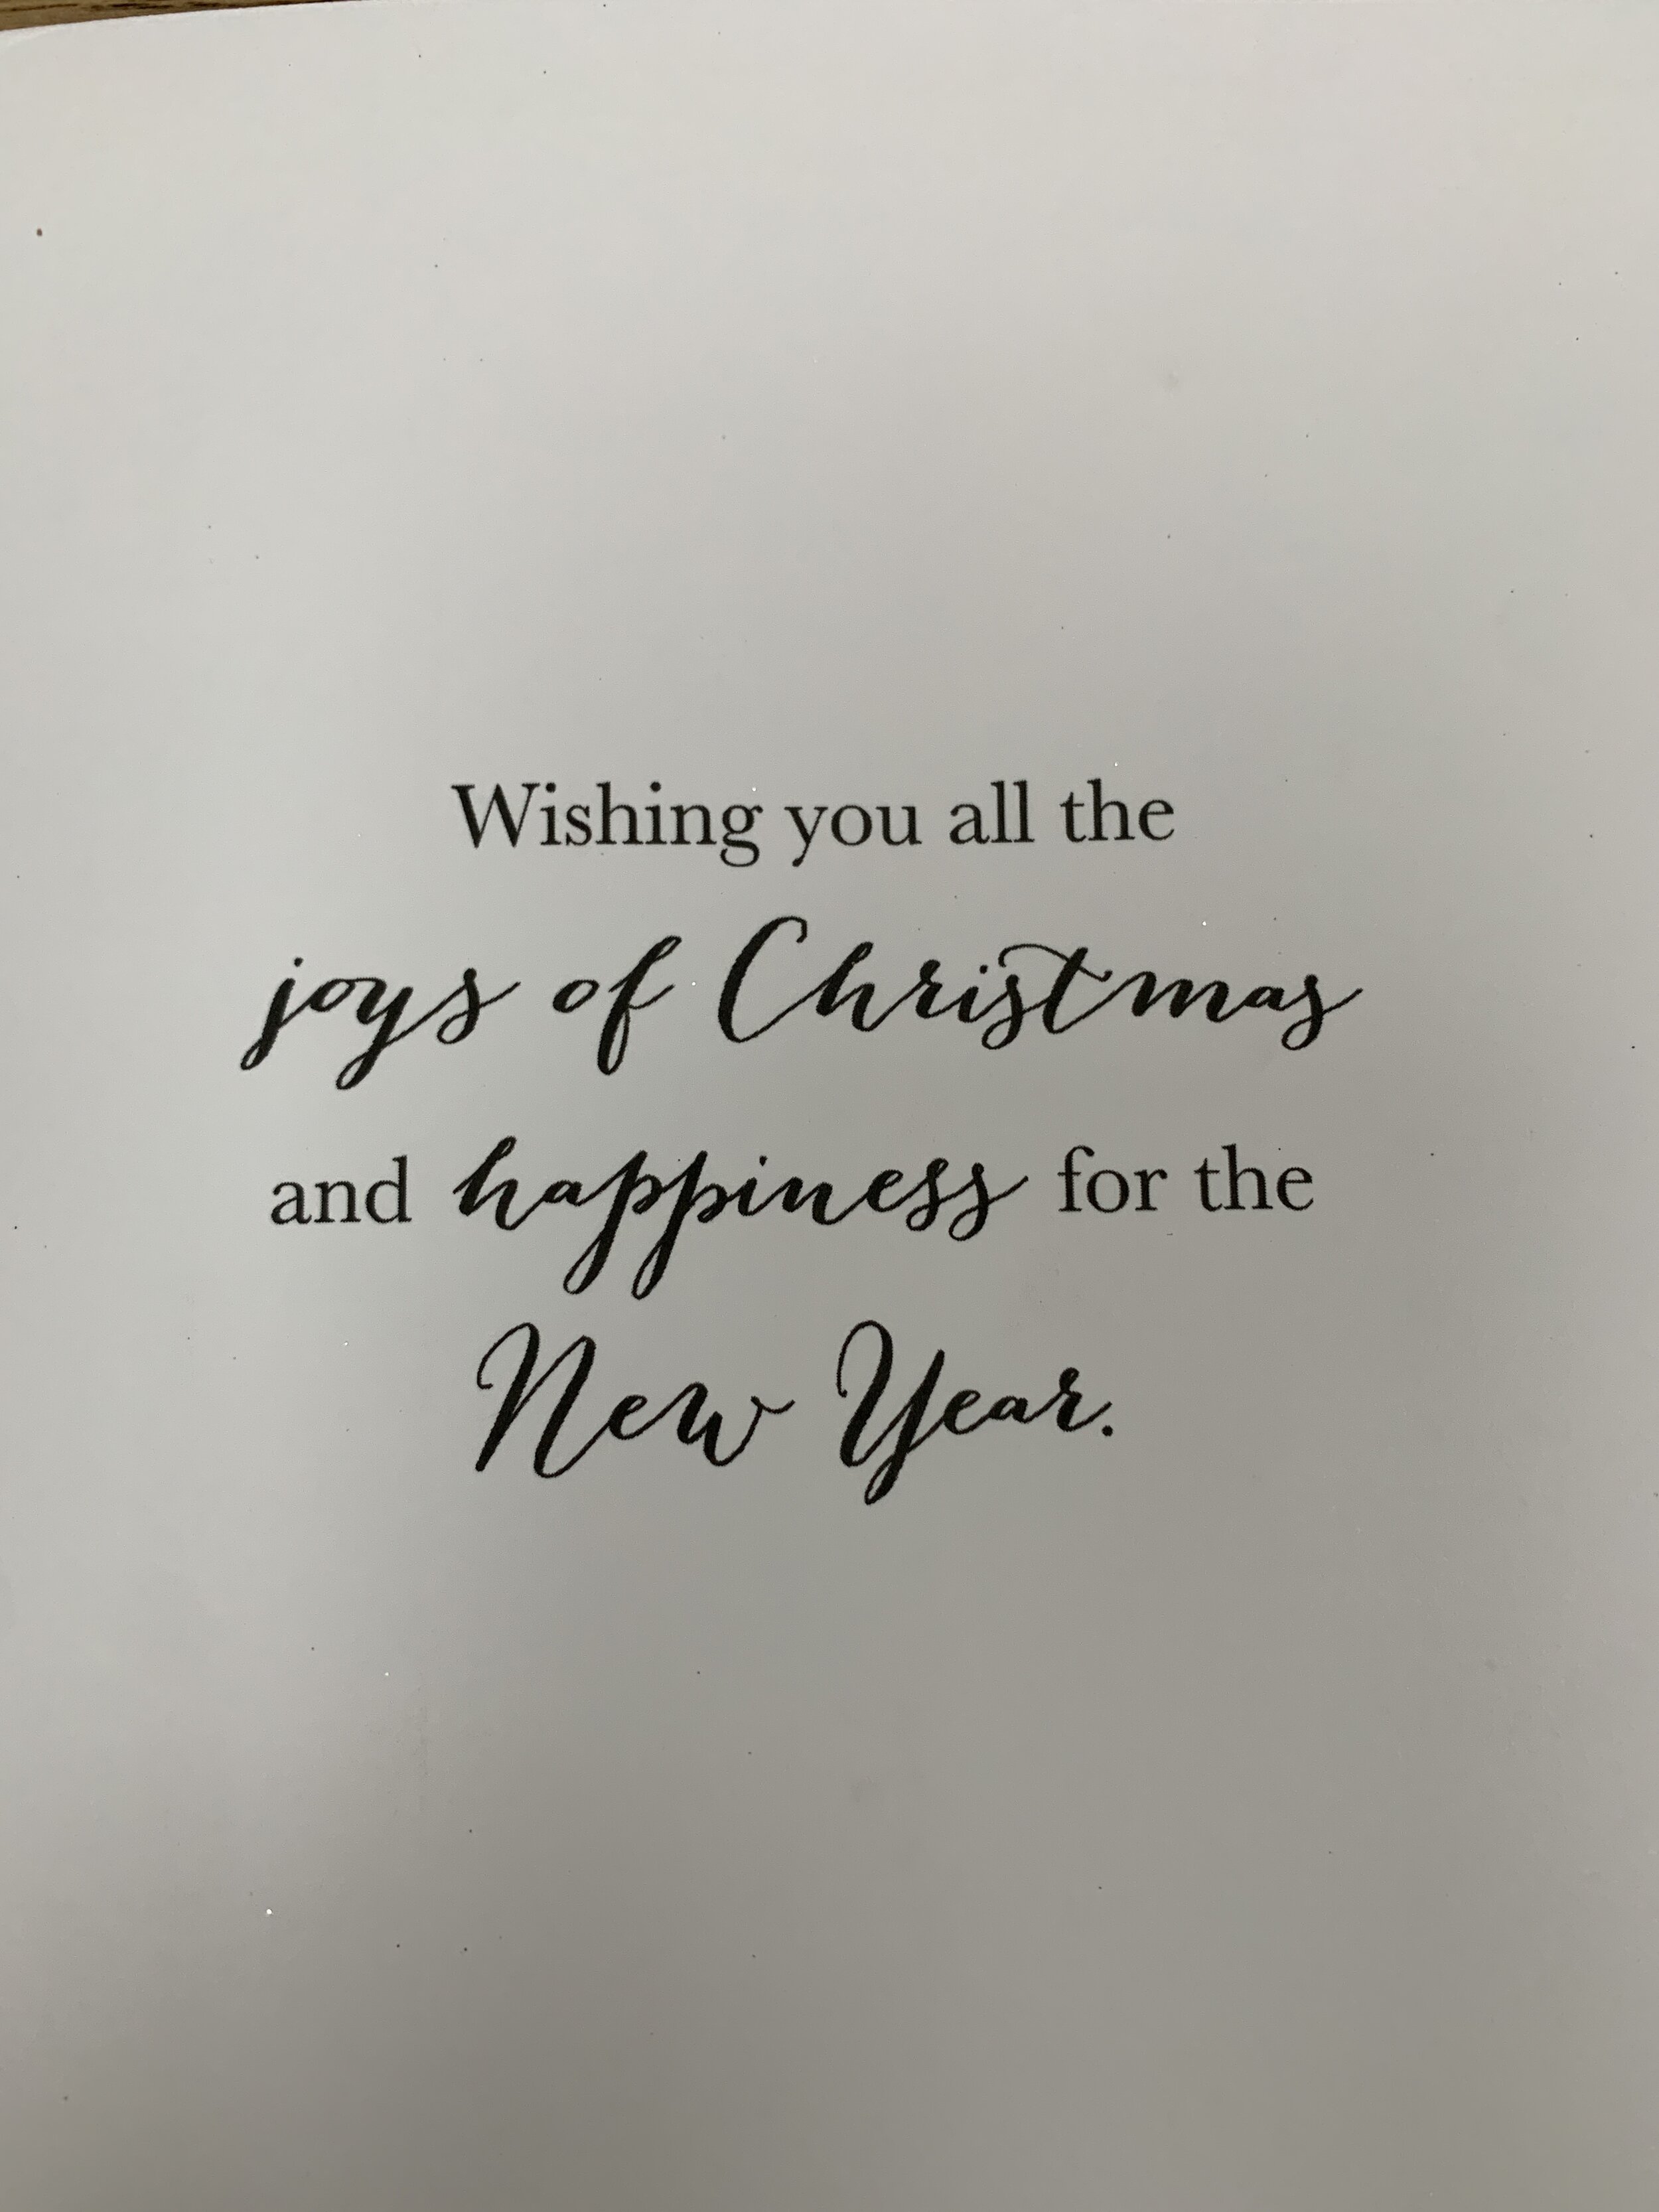 Wishing you all the
joys of Christmas
and happiness for the
New Year.